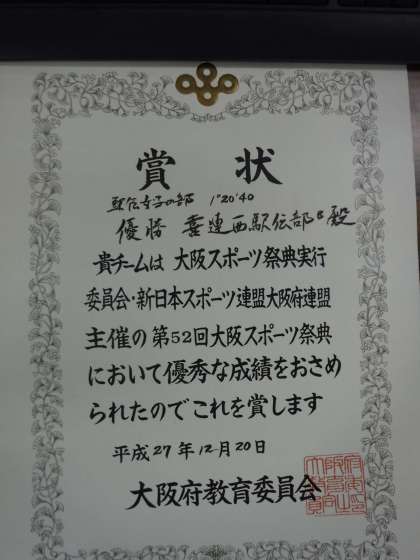 賞 状
駅伝女子の部 1°20'40
優勝 連西駅伝部B殿
貴チームは 大阪スポーツ祭典実行
委員会・新日本スポーツ連盟大阪府連盟
主催の第52回大阪スポーツ祭典
において優秀な成績をおさめ
られたのでこれを賞します
平成27年12月20日
大阪府教育委員会